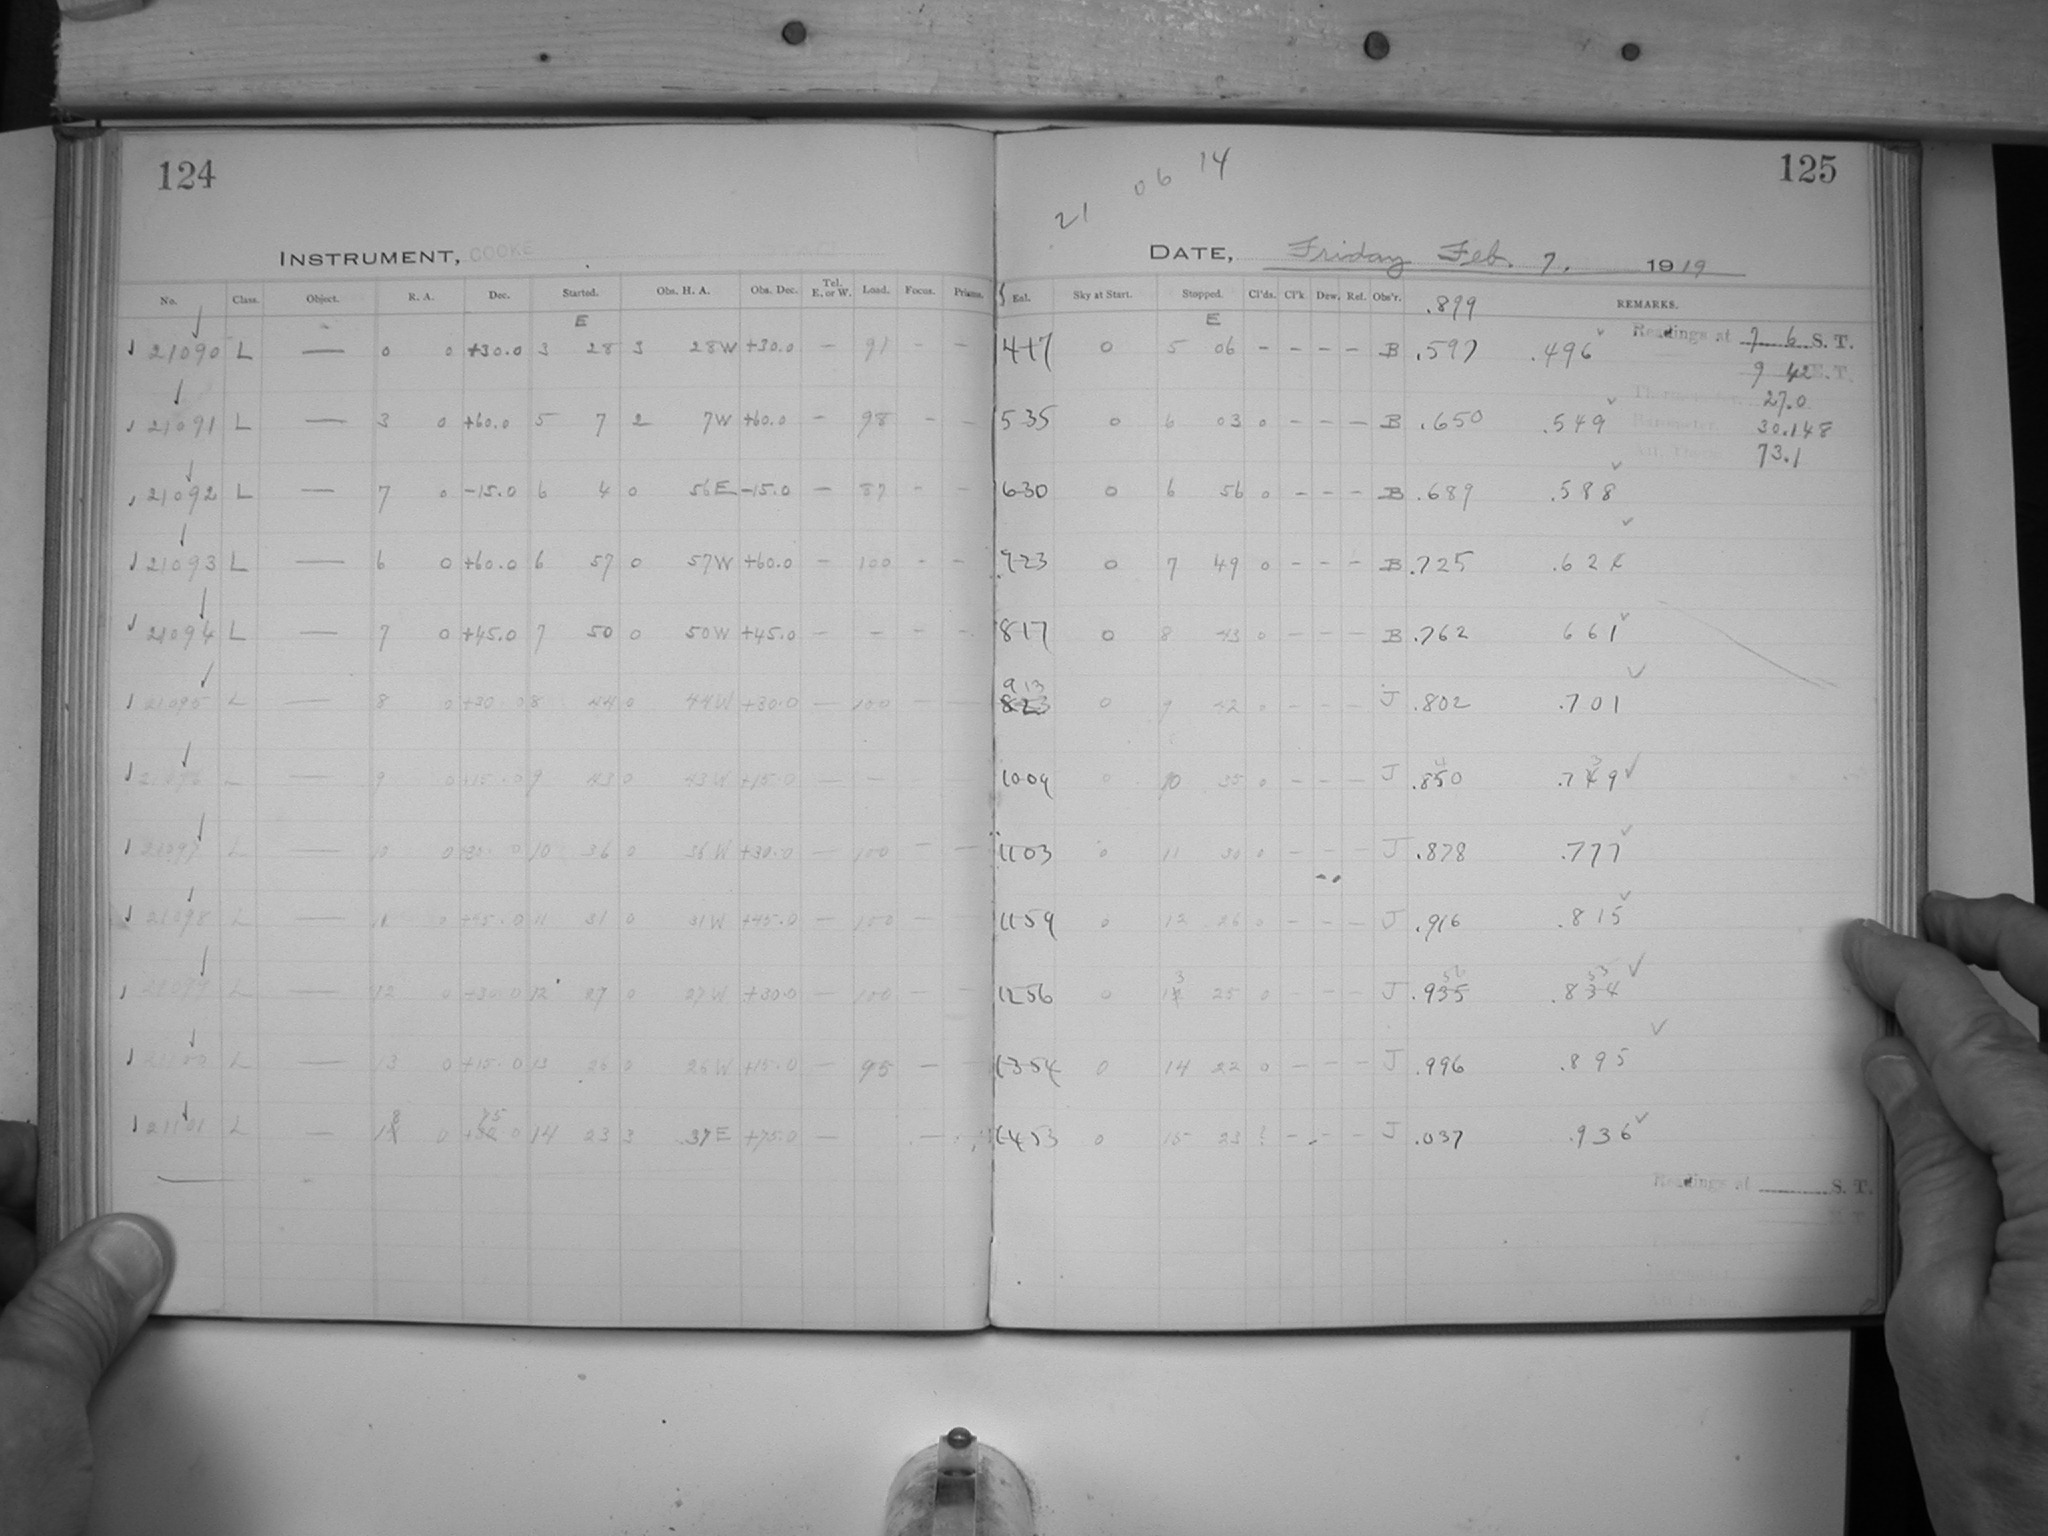 124
INSTRUMENT, COOKE
No. Class. Object. R. A. Dec. Started. Obs. H. A. Obs. Dec. Tel. E. or W. Load. Focus. Prisms.
E
21090 L — 0 0 +30.0 3 28 3 28W +30.0 – 91 – –
21091 L — 3 0 +60.0 5 7 2 7W +60.0 – 98 – –
21092 L — 7 0 -15.0 6 4 0 56E -15.0 – 87 – –
21093 L — 6 0 +60.0 6 57 0 57W +60.0 – 100 – –
21094 L — 7 0 +45.0 7 50 0 50W +45.0 – – – –
21095 L — 8 0 +30.0 8 44 0 44W +30.0 – 100 – –
21096 L — 9 0 +15.0 9 43 0 43W +15.0 – – – –
21097 L — 10 0 +30.0 10 36 0 36W +30.0 – 100 – –
21098 L — 11 0 +45.0 11 31 0 31W +45.0 – 100 – –
21099 L — 12 0 +30.0 12 27 0 27W +30.0 – 100 – –
21100 L — 13 0 +15.0 13 26 0 26W +15.0 – 95 – –
21101 L — 18 0 +75.0 14 23 3 37E +75.0 – –
125
21 06 14
DATE, Friday Feb. 7. 1919
Exl. Sky at Start. Stopped. Cl'ds. Cl'k Dew. Ref. Obs'r. .899 REMARKS.
E
417 0 5 06 – – – – B .597 .496 ✓
535 0 6 03 0 – – – B .650 .549 ✓
630 0 6 56 0 – – – B .689 .588 ✓
723 0 7 49 0 – – – B .725 .624 ✓
817 0 8 43 0 – – – B .762 661 ✓
913
823 0 9 42 0 – – – J .802 .701 ✓
1009 0 10 35 0 – – – J .840 .739 ✓
1103 0 11 30 0 – – – J .878 .777 ✓
1159 0 12 26 0 – – – J .916 .815 ✓
1256 0 13 25 0 – – – J .935 .834 ✓
1354 0 14 22 0 – – – J .996 .895 ✓
1453 0 15 23 ? – – – J .037 .936 ✓
Readings at 7 6 S. T.
9 42 E. T.
Thermometer, 27.0
Barometer 30.148
Att. Therm. 73.1
Readings at S. T.